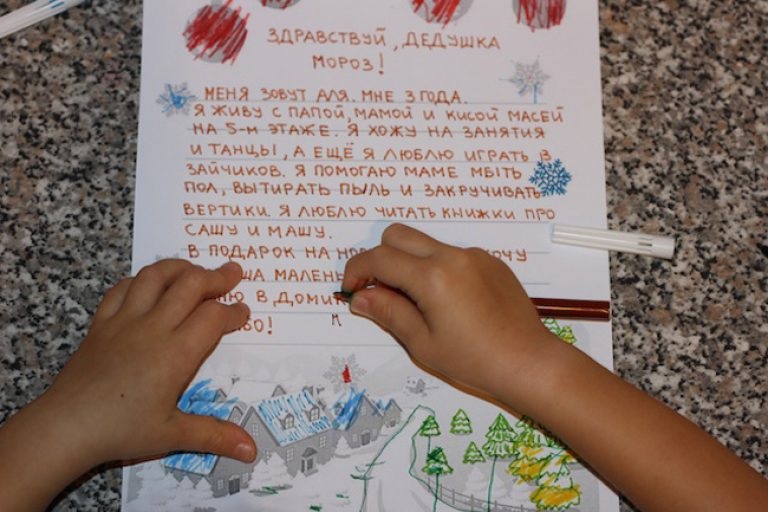 ЗДРАВСТВУЙ, ДЕДУШКА
МОРОЗ!
МЕНЯ ЗОВУТ АЛЯ. МНЕ 3 ГОДА.
Я ЖИВУ С ПАПОЙ, МАМОЙ И КИСОЙ МАСЕЙ
НА 5-М ЭТАЖЕ. Я ХОЖУ НА ЗАНЯТИЯ
И ТАНЦЫ, А ЕЩЁ Я ЛЮБЛЮ ИГРАТЬ В
ЗАЙЧИКОВ. Я ПОМОГАЮ МАМЕ МЫТЬ
ПОЛ, ВЫТИРАТЬ ПЫЛЬ И ЗАКРУЧИВАТЬ
ВЕРТИКИ. Я ЛЮБЛЮ ЧИТАТЬ КНИЖКИ ПРО
САШУ И МАШУ.
В ПОДАРОК НА ХОЧУ
В